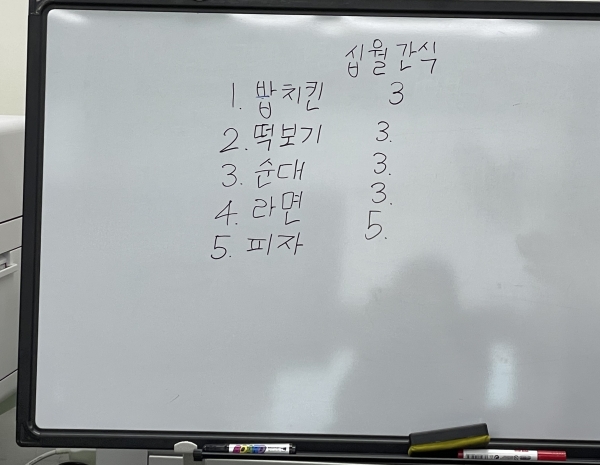 십월 간식
1. 밥치킨 3
2. 떡보기 3.
3. 순대 3.
4. 라면 3.
5. 피자 5.